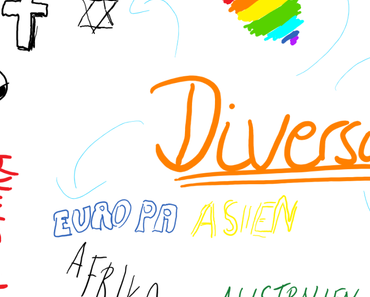 Divers
EUROPA ASIEN
AFRIKA
AUSTRALIEN